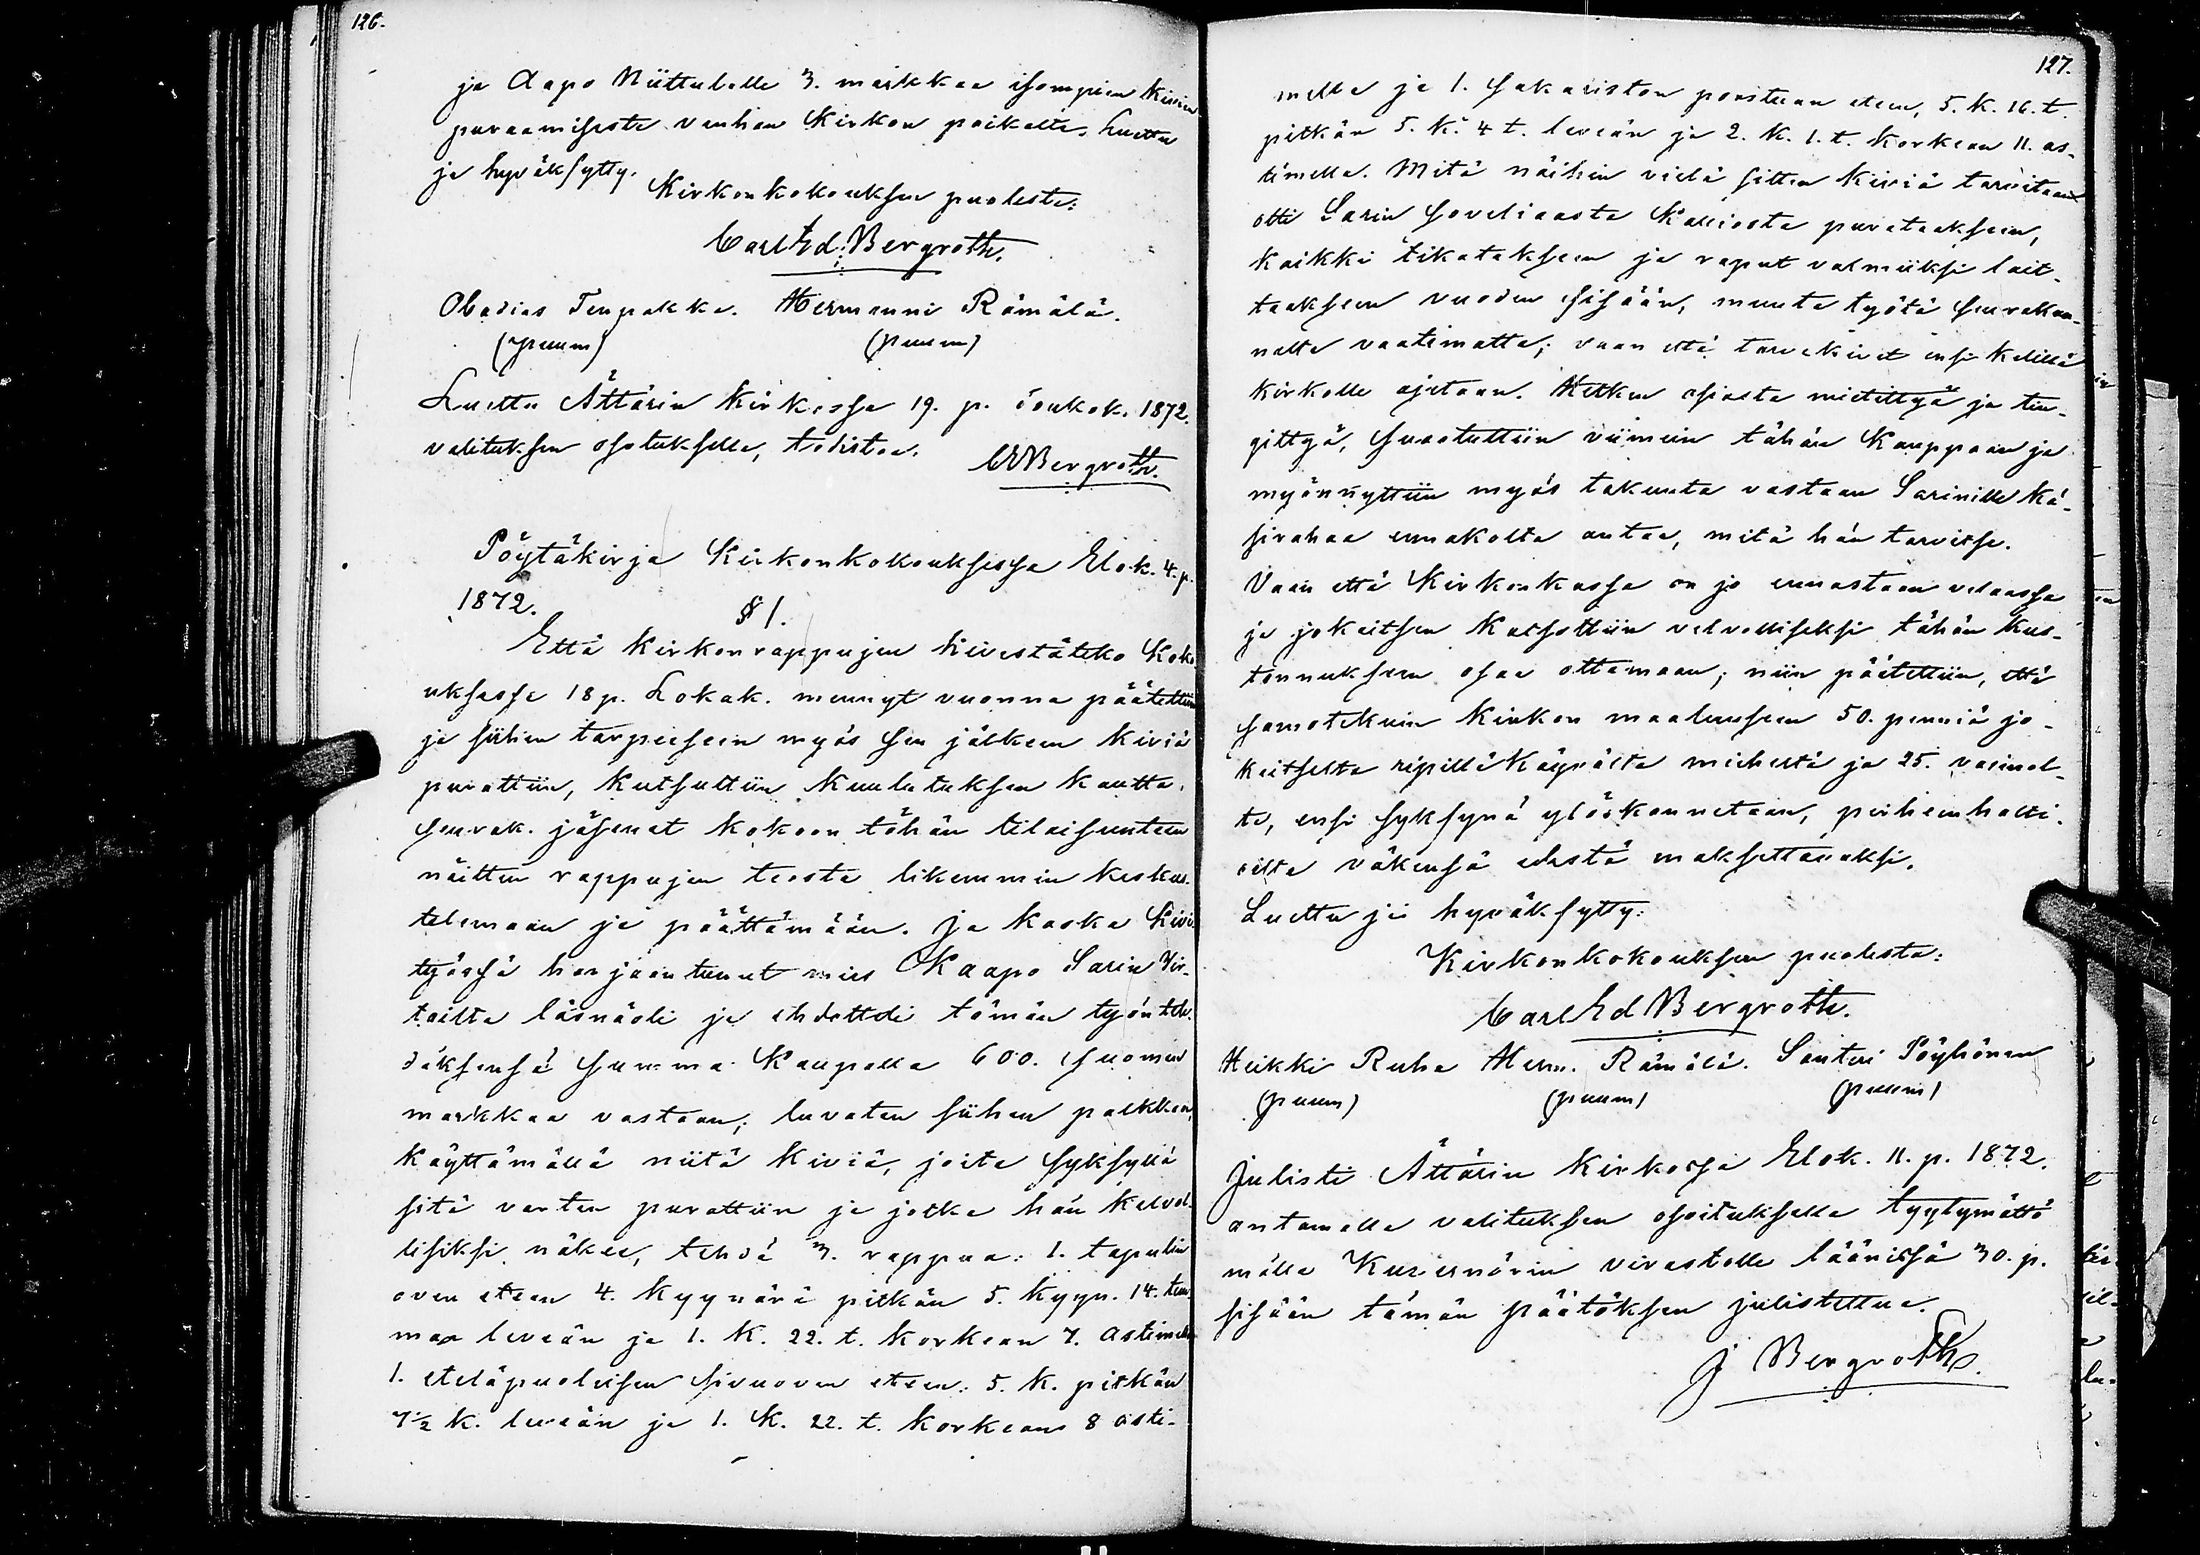 126.
ja Aapo Niittulalle 3. markkaa isompien kivien
puraamisesta vanhan Kirkon paikalta. Luettu
ja hyväksytty.
Kirkonkokouksen puolesta:
Carl Ed: Bergroth.
Obadias Tenpakka. Hermanni Rämälä.
(puum) (puum)
Luettu Ättärin Kirkossa 19. p. Toukok. 1872.
valituksen osotuksella, todistaa.
CEBergroth.
Pöytäkirja Kirkonkokouksessa Elok. 4. p.
1872. § 1.
Että Kirkonrappujen kivestäteko Koko
uksessa 18 p. Lokak. mennyt vuonna päätettiin
ja siihen tarpeeseen myös sen jälkeen Kiviä
purattiin, Kutsuttiin Kuulutuksen kautta
seurak. jäsenet kokoon tähän tilaisuuteen
näitten rappujen teosta likemmin keskus-
telemaan ja päättämään. Ja koska Kivi
työssä harjaantunut mies Kaapo Sarin Vir-
tailta läsnäoli ja ehdotteli tämän työn teh-
däksensä summa Kaupalla 600. Suomen
markkaa vastaan; luvaten siihen palkkaan,
Käyttämällä niitä Kiviä, joita syksyllä
sitä varten purattiin ja jotka hän kelvol-
lisiksi näkee, tehdä 3. rappua: 1. tapulin
oven eteen 4. Kyynärä pitkän 5. Kyyn. 14. tuu
maa leveän ja 1. K. 22. t. Korkean 7. astimella
1. eteläpuoleisen sivuoven eteen: 5. K. pitkän
7½ K. leveän ja 1. K. 22. t. Korkean 8 asti-
127.
mella ja 1. Sakariston porstuan eteen, 5. K. 16. t.
pitkän 5. K. 4 t. leveän ja 2. K. 1. t. Korkean 11. as-
timella. Mitä näihin vielä sitten Kiviä tarvitaan
otti Sarin soveliaasta Kalliosta purataksein,
kaikki tikataksein ja raput valmiiksi lait-
taaksein vuoden sisään, muuta työtä seurakun-
nalta vaatimatta; vaan että tarvekivet ensi kelillä
kirkolle ajetaan. Hetken asiasta mietittyä ja tin-
gittyä, suostuttiin viimein tähän Kauppaan ja
myönnyttiin myös takuuta vastaan Sarinille Kä-
sirahaa ennakolta antaa, mitä hän tarvitse.
Vaan että Kirkonkassa on jo ennastaan velassa
ja jokaitsen Katsottiin velvolliseksi tähän Kus-
tannukseen osaa ottamaan; niin päätettiin, että
samotekuin Kirkon maalauseen 50. penniä jo-
kaitselta ripilläkäyvältä mieheltä ja 25. vaimol-
ta, ensi syksynä ylöskannetaan, perheenhalti-
oilta väkensä edestä maksettavaksi.
Luettu ja hyväksytty:
Kirkonkokouksen puolesta:
Carl Ed Bergroth.
Heikki Ruha Herm. Rämälä. Santeri Pöyhönen
(puum) (puum) (puum)
Julisti Ättärin Kirkossa Elok. 11. p. 1872.
antamalla valituksen osoituksella tyytymättö
mälle Kuvernörin virastolle läänissä 30. p.
sisään tämän päätöksen julistettua.
J Bergroth.